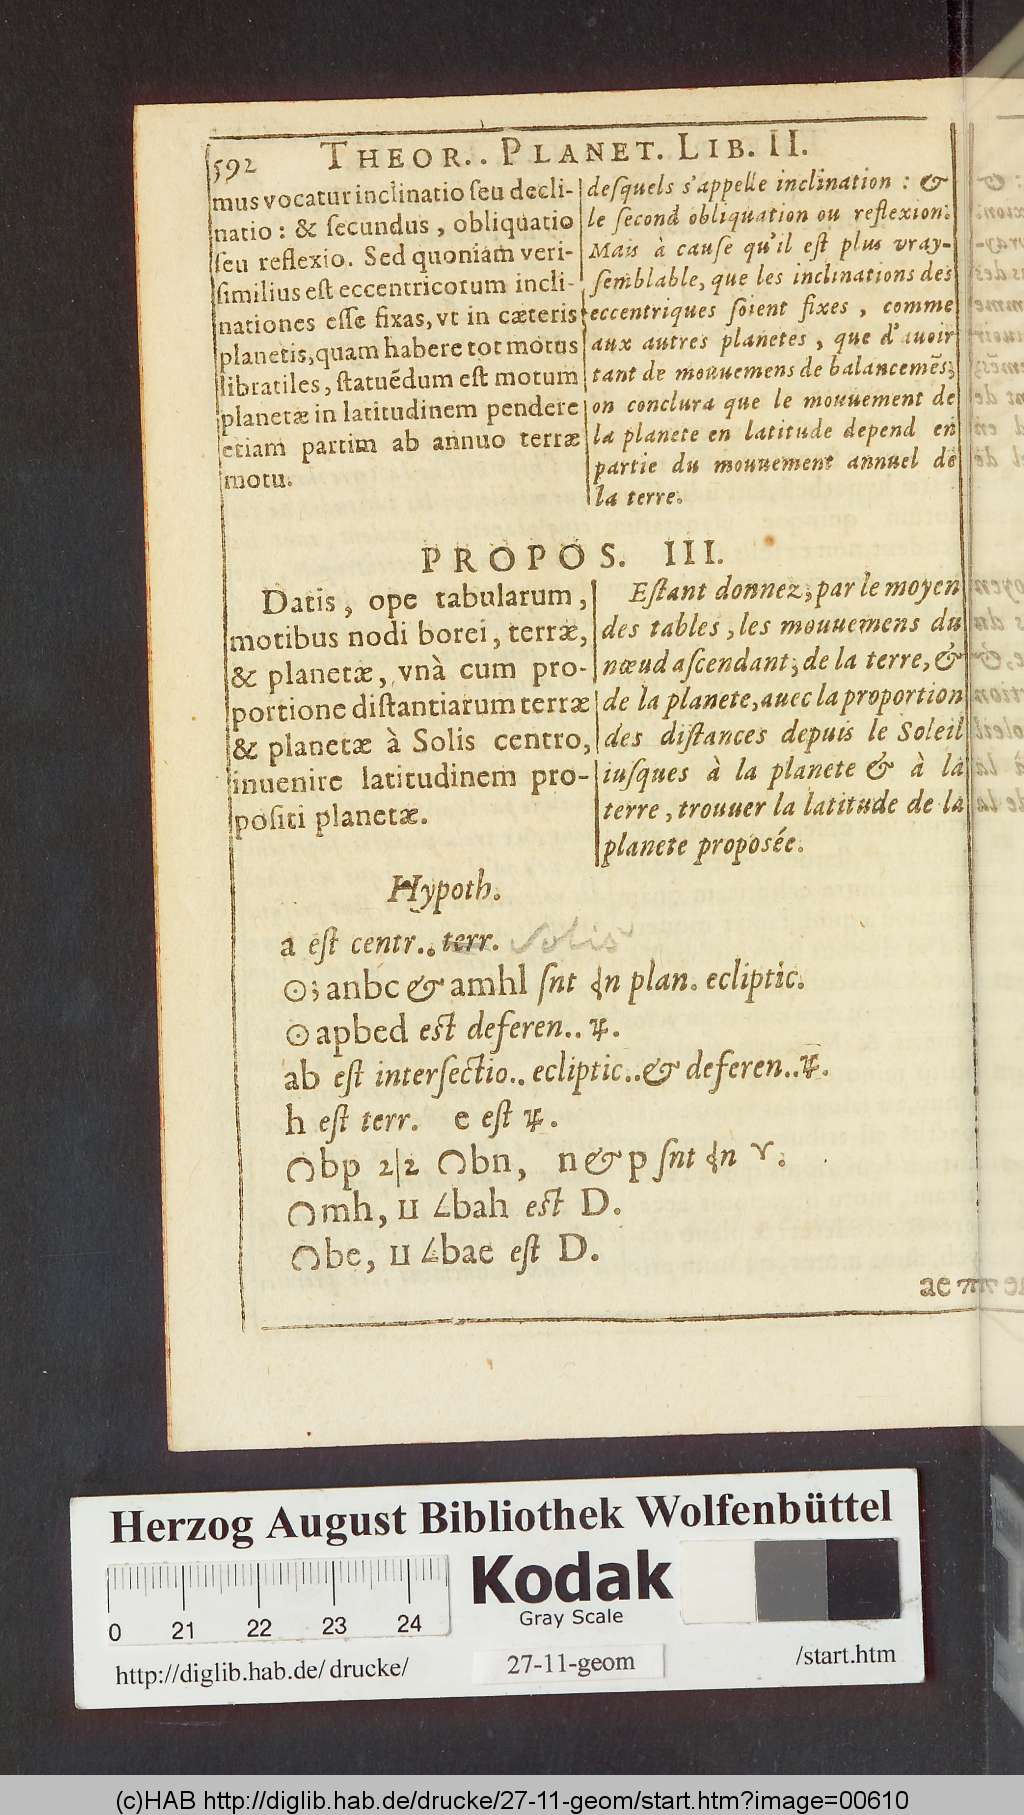 592 THEOR.. PLANET. LIB. II.
mus vocatur inclinatio ſeu decli-
natio : & ſecundus , obliquatio
ſeu reflexio. Sed quoniam veri-
ſimilius eſt eccentricorum incli-
nationes eſſe fixas, vt in cæteris
planetis, quam habere tot motus
libratiles, ſtatuēdum eſt motum
planetæ in latitudinem pendere
etiam partim ab annuo terræ
motu.
deſquels s'appelle inclination : &
le ſecond obliquation ou reflexion.
Mais à cauſe qu'il eſt plus vray-
ſemblable, que les inclinations des
eccentriques ſoient fixes , comme
aux autres planetes , que d'auoir
tant de mouuemens de balancemēs;
on conclura que le mouuement de
la planete en latitude depend en
partie du mouuement annuel de
la terre.
PROPOS. III.
Datis, ope tabularum,
motibus nodi borei, terræ,
& planetæ, vnà cum pro-
portione diſtantiarum terræ
& planetæ à Solis centro,
inuenire latitudinem pro-
poſiti planetæ.
Eſtant donnez, par le moyen
des tables, les mouuemens du
nœud aſcendant, de la terre, &
de la planete, auec la proportion
des diſtances depuis le Soleil
iuſques à la planete & à la
terre, trouuer la latitude de la
planete proposée.
Hypoth.
a eſt centr.. terr. Solis
☉; anbc & amhl ſnt in plan. ecliptic.
☉ apbed eſt deferen..
ab eſt interſectio.. ecliptic.. & deferen..
h eſt terr. e eſt
bp 2|2 bn, n & p ſnt in ♈.
mh, ⊔ ∠bah eſt D.
be, ⊔ ∠bae eſt D.
ae π
Herzog August Bibliothek Wolfenbüttel
Kodak
Gray Scale
0 21 22 23 24
http://diglib.hab.de/drucke/ 27-11-geom /start.htm
(c)HAB http://diglib.hab.de/drucke/27-11-geom/start.htm?image=00610